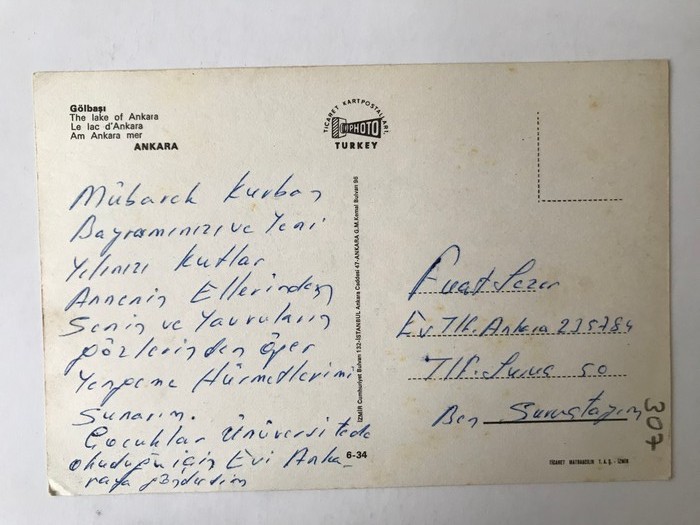 Gölbaşı
The lake of Ankara
Le lac d'Ankara
Am Ankara mer
ANKARA
TICARET KARTPOSTALLARI.
PHOTO
TURKEY
Mübarek Kurban
Bayramınızı ve Yeni
Yılınızı Kutlar
Annenin Ellerinden
Senin ve Yavruların
gözlerinden öper
Yengeme Hürmetlerimi
Sunarım.
Çocuklar Üniversitede
okuduğu için Evi Anka-
raya gönderdim
6-34
İZMİR Cumhuriyet Bulvarı 132-İSTANBUL Ankara Caddesi 47-ANKARA G.M.Kemal Bulvarı 96
Fuat Sezer
Ev Tlf. Ankara 235784
Tlf. 50
Ben
307
TİCARET MATBAACILIK T.A.Ş. - İZMİR